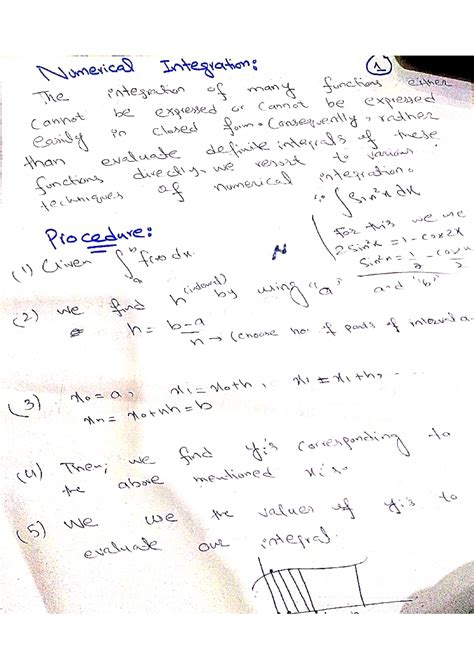 Numerical Integration: 1
The integration of many functions either
cannot be expressed or cannot be expressed
easily in closed form. Consequently, rather
than evaluate definite integrals of these
functions directly, we resort to various
techniques of numerical integration.
∫ sin²x dx
For this we use
2 sin²x = 1 - cos2x
sin²x = 1/2 - cos2x/2
Procedure:
(1) Given ∫_a^b f(x) dx
(2) we find h by using "a" and "b"
h = b-a/n → (choose no. of parts of interval
(3) x₀ = a, x₁ = x₀+h,
xₙ = x₀+nh = b
(4) Then, we find yᵢ's corresponding to
the above mentioned xᵢ's.
(5) We use the values of yᵢ's to
evaluate our integral.